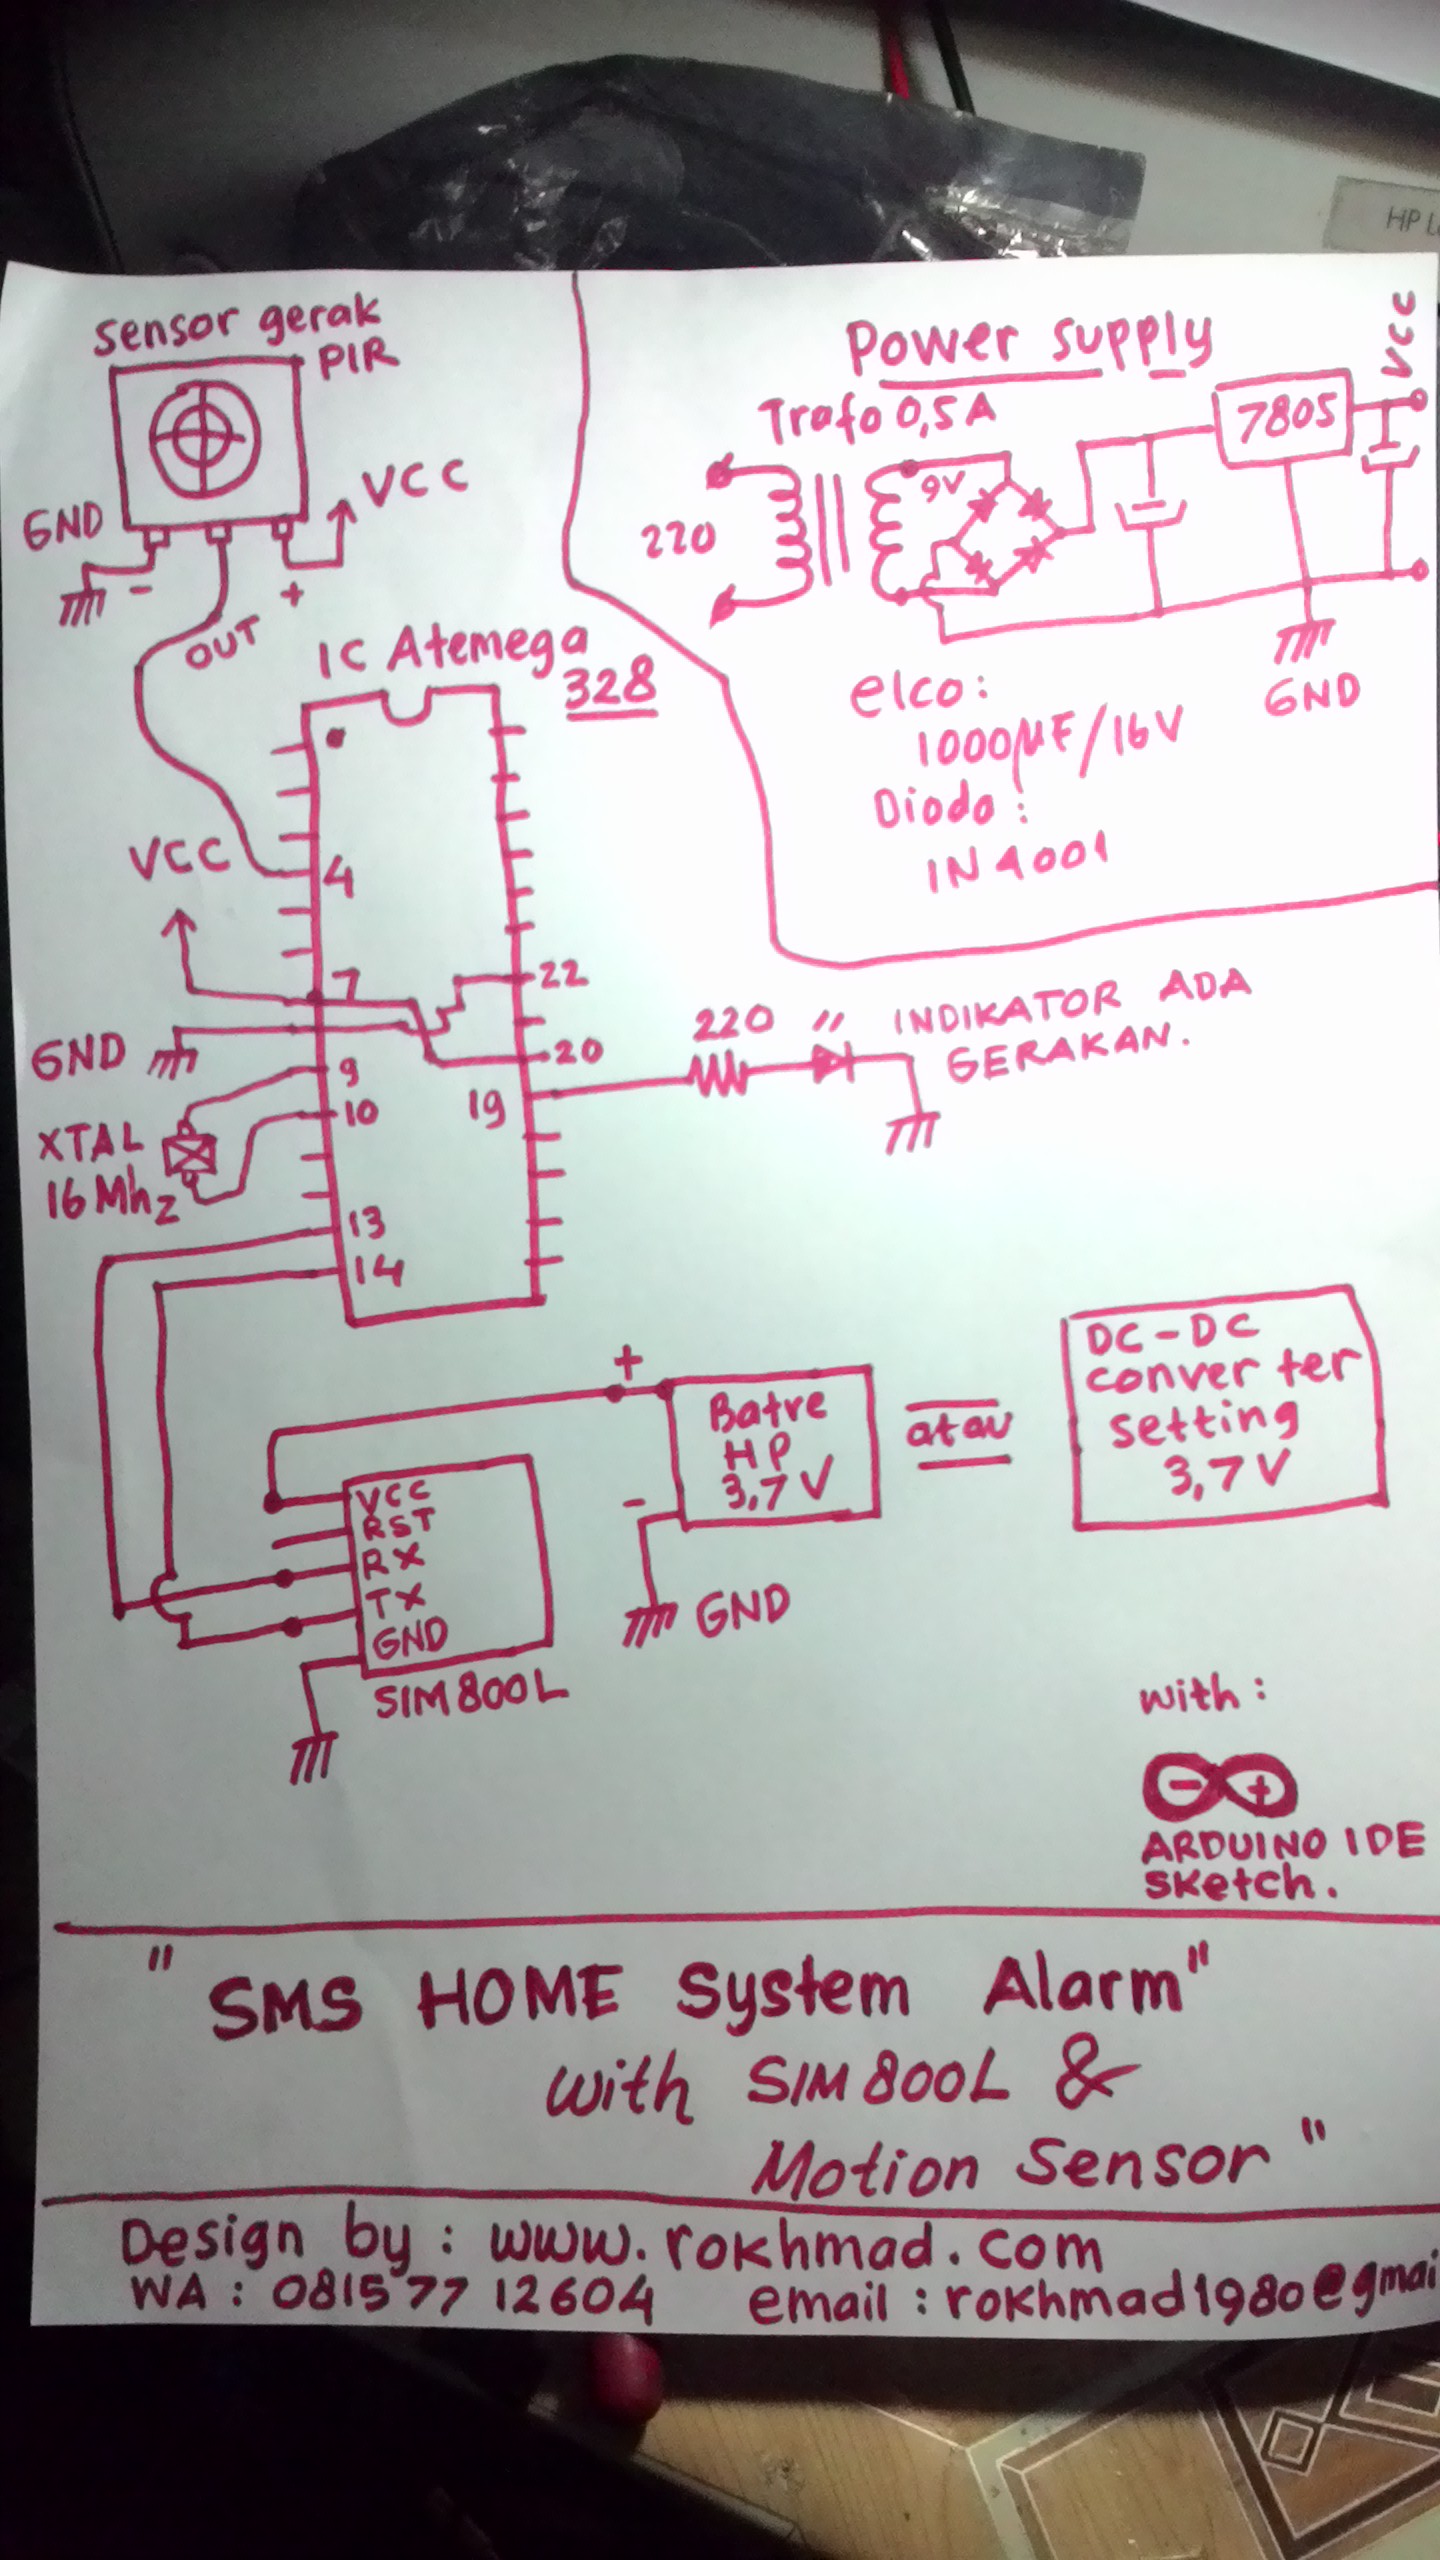 HP L
sensor gerak
PIR
GND
VCC
-
+
OUT
Power supply
Trafo 0,5A
220
9V
7805
VCC
GND
elco:
1000µF/16V
Diodo:
1N4001
IC Atemega
328
VCC
4
7
22
GND
20
9
19
10
XTAL
16 Mhz
13
14
220 " INDIKATOR ADA
GERAKAN.
+
-
Batre
HP
3,7 V
GND
atau
DC-DC
converter
setting
3,7 V
VCC
RST
RX
TX
GND
SIM800L
with:
- +
ARDUINO IDE
sketch.
" SMS HOME System Alarm"
with SIM800L &
Motion Sensor "
Design by: www.rokhmad.com
WA: 081577 12604 email: rokhmad1980@gmai